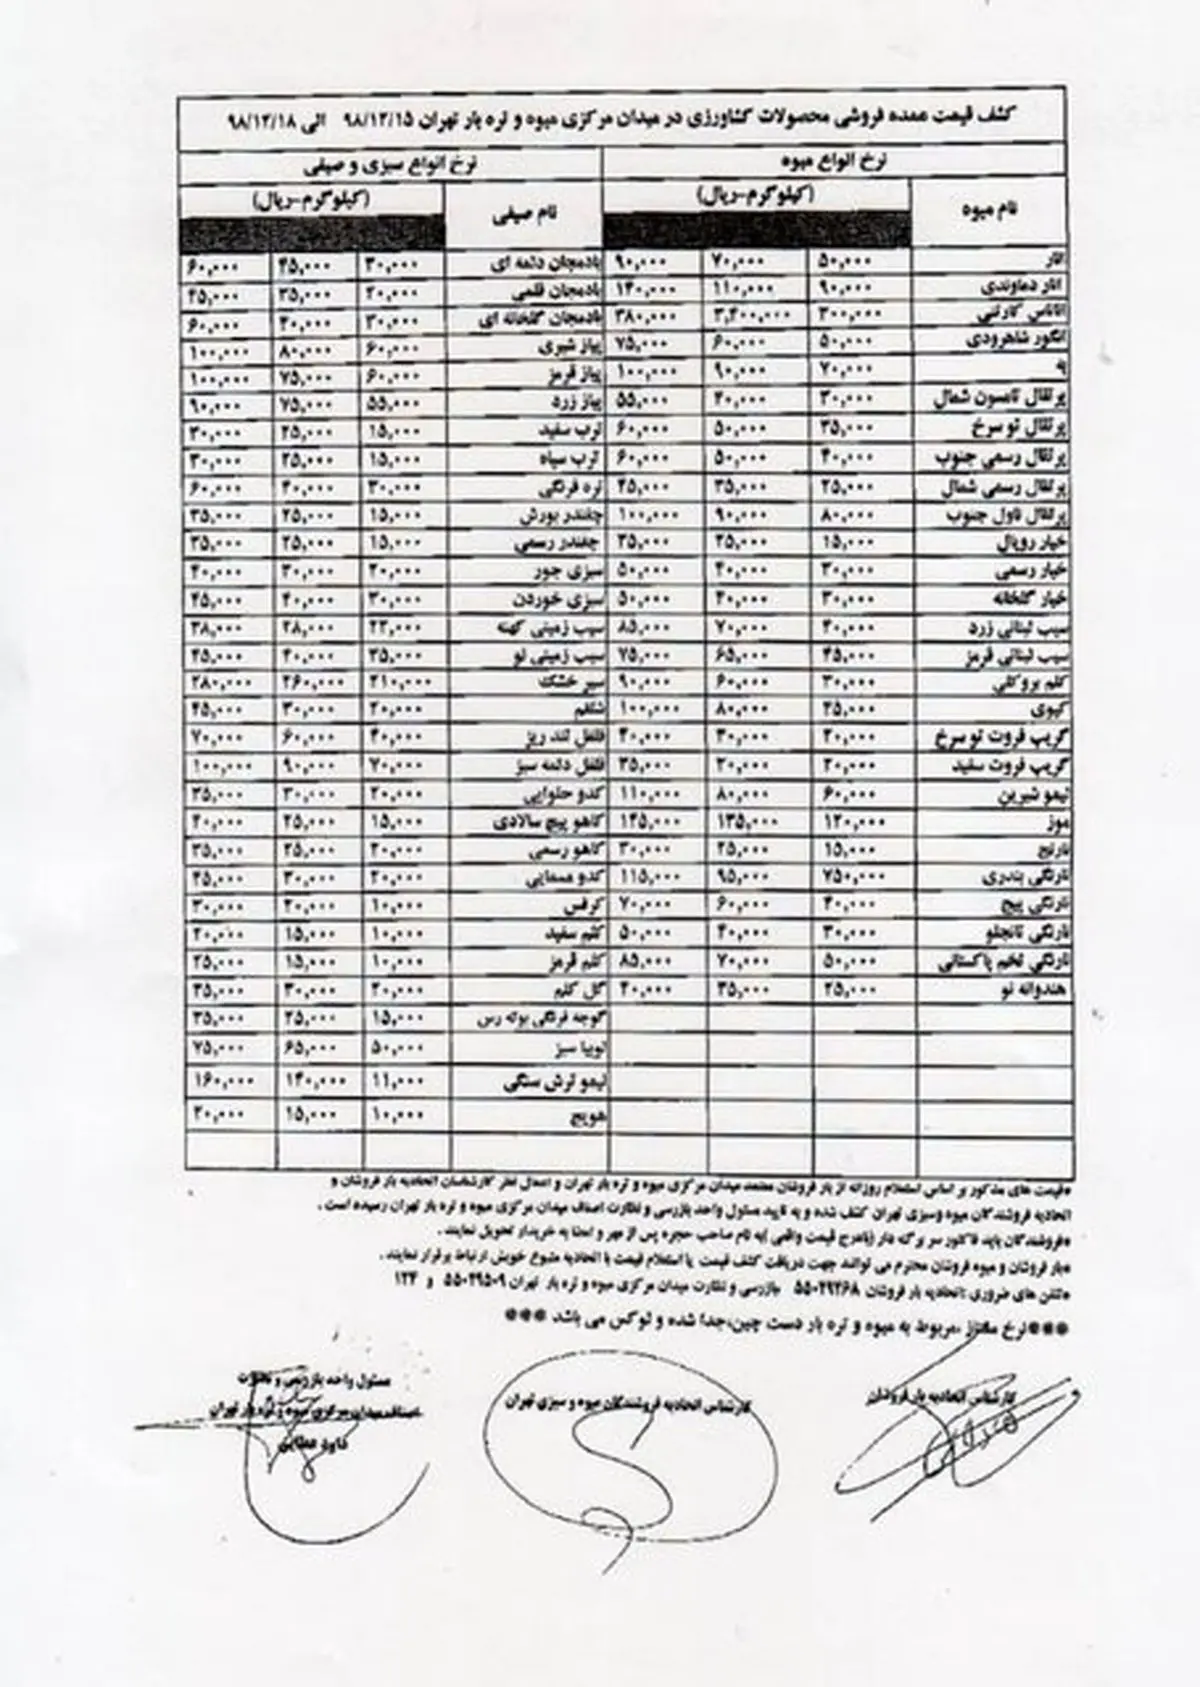 کشف قیمت عمده فروشی محصولات کشاورزی در میدان مرکزی میوه و تره بار تهران ۹۸/۱۲/۱۵ الی ۹۸/۱۲/۱۸
نرخ انواع میوه نرخ انواع سبزی و صیفی
نام میوه (کیلوگرم-ریال) نام صیفی (کیلوگرم-ریال)
انار ۵۰,۰۰۰ ۷۰,۰۰۰ ۹۰,۰۰۰ بادمجان دلمه ای ۳۰,۰۰۰ ۴۵,۰۰۰ ۶۰,۰۰۰
انار دماوندی ۹۰,۰۰۰ ۱۱۰,۰۰۰ ۱۴۰,۰۰۰ بادمجان قلمی ۲۰,۰۰۰ ۳۵,۰۰۰ ۴۵,۰۰۰
آناناس کارتنی ۳۰۰,۰۰۰ ۳,۴۰۰,۰۰۰ ۳۸۰,۰۰۰ بادمجان گلخانه ای ۳۰,۰۰۰ ۴۰,۰۰۰ ۶۰,۰۰۰
انگور شاهرودی ۵۰,۰۰۰ ۶۰,۰۰۰ ۷۵,۰۰۰ پیاز شیری ۶۰,۰۰۰ ۸۰,۰۰۰ ۱۰۰,۰۰۰
به ۷۰,۰۰۰ ۹۰,۰۰۰ ۱۰۰,۰۰۰ پیاز قرمز ۶۰,۰۰۰ ۷۵,۰۰۰ ۱۰۰,۰۰۰
پرتقال تامسون شمال ۳۰,۰۰۰ ۴۰,۰۰۰ ۵۵,۰۰۰ پیاز زرد ۵۵,۰۰۰ ۷۵,۰۰۰ ۹۰,۰۰۰
پرتقال تو سرخ ۳۵,۰۰۰ ۵۰,۰۰۰ ۶۰,۰۰۰ ترب سفید ۱۵,۰۰۰ ۲۵,۰۰۰ ۳۰,۰۰۰
پرتقال رسمی جنوب ۴۰,۰۰۰ ۵۰,۰۰۰ ۶۰,۰۰۰ ترب سیاه ۱۵,۰۰۰ ۲۵,۰۰۰ ۳۰,۰۰۰
پرتقال رسمی شمال ۲۵,۰۰۰ ۳۵,۰۰۰ ۴۵,۰۰۰ تره فرنگی ۳۰,۰۰۰ ۴۰,۰۰۰ ۶۰,۰۰۰
پرتقال ناول جنوب ۸۰,۰۰۰ ۹۰,۰۰۰ ۱۰۰,۰۰۰ چغندر بورش ۱۵,۰۰۰ ۲۵,۰۰۰ ۳۵,۰۰۰
خیار رویال ۱۵,۰۰۰ ۲۵,۰۰۰ ۳۵,۰۰۰ چغندر رسمی ۱۵,۰۰۰ ۲۵,۰۰۰ ۳۵,۰۰۰
خیار رسمی ۳۰,۰۰۰ ۴۰,۰۰۰ ۵۰,۰۰۰ سبزی جور ۲۰,۰۰۰ ۳۰,۰۰۰ ۴۰,۰۰۰
خیار گلخانه ۳۰,۰۰۰ ۴۰,۰۰۰ ۵۰,۰۰۰ سبزی خوردن ۳۰,۰۰۰ ۴۰,۰۰۰ ۴۵,۰۰۰
سیب لبنانی زرد ۴۰,۰۰۰ ۷۰,۰۰۰ ۸۵,۰۰۰ سیب زمینی کهنه ۲۲,۰۰۰ ۲۸,۰۰۰ ۳۸,۰۰۰
سیب لبنانی قرمز ۴۵,۰۰۰ ۶۵,۰۰۰ ۷۵,۰۰۰ سیب زمینی نو ۳۵,۰۰۰ ۴۰,۰۰۰ ۴۵,۰۰۰
کلم بروکلی ۳۰,۰۰۰ ۶۰,۰۰۰ ۹۰,۰۰۰ سیر خشک ۲۱۰,۰۰۰ ۲۶۰,۰۰۰ ۲۸۰,۰۰۰
کیوی ۴۵,۰۰۰ ۸۰,۰۰۰ ۱۰۰,۰۰۰ شلغم ۲۰,۰۰۰ ۳۰,۰۰۰ ۴۵,۰۰۰
گریپ فروت تو سرخ ۲۰,۰۰۰ ۳۰,۰۰۰ ۴۰,۰۰۰ فلفل تند ریز ۴۰,۰۰۰ ۶۰,۰۰۰ ۷۰,۰۰۰
گریپ فروت سفید ۲۰,۰۰۰ ۲۰,۰۰۰ ۳۵,۰۰۰ فلفل دلمه سبز ۷۰,۰۰۰ ۹۰,۰۰۰ ۱۰۰,۰۰۰
لیمو شیرین ۶۰,۰۰۰ ۸۰,۰۰۰ ۱۱۰,۰۰۰ کدو حلوایی ۲۰,۰۰۰ ۳۰,۰۰۰ ۳۵,۰۰۰
موز ۱۲۰,۰۰۰ ۱۳۵,۰۰۰ ۱۴۵,۰۰۰ کاهو پیچ سالادی ۱۵,۰۰۰ ۲۵,۰۰۰ ۴۰,۰۰۰
نارنج ۱۵,۰۰۰ ۲۵,۰۰۰ ۳۰,۰۰۰ کاهو رسمی ۲۰,۰۰۰ ۲۵,۰۰۰ ۳۵,۰۰۰
نارنگی بندری ۷۵۰,۰۰۰ ۹۵,۰۰۰ ۱۱۵,۰۰۰ کدو مسمایی ۲۰,۰۰۰ ۳۰,۰۰۰ ۴۵,۰۰۰
نارنگی پیج ۴۰,۰۰۰ ۶۰,۰۰۰ ۷۰,۰۰۰ کرفس ۱۰,۰۰۰ ۲۰,۰۰۰ ۳۰,۰۰۰
نارنگی تانجلو ۳۰,۰۰۰ ۴۰,۰۰۰ ۵۰,۰۰۰ کلم سفید ۱۰,۰۰۰ ۱۵,۰۰۰ ۲۰,۰۰۰
نارنگی تخم پاکستانی ۵۰,۰۰۰ ۷۰,۰۰۰ ۸۵,۰۰۰ کلم قرمز ۱۰,۰۰۰ ۱۵,۰۰۰ ۲۵,۰۰۰
هندوانه نو ۲۵,۰۰۰ ۳۵,۰۰۰ ۴۰,۰۰۰ گل کلم ۲۰,۰۰۰ ۳۰,۰۰۰ ۳۵,۰۰۰
گوجه فرنگی بوته رس ۱۵,۰۰۰ ۲۵,۰۰۰ ۳۵,۰۰۰
لوبیا سبز ۵۰,۰۰۰ ۶۵,۰۰۰ ۷۵,۰۰۰
لیمو ترش سنگی ۱۱,۰۰۰ ۱۴۰,۰۰۰ ۱۶۰,۰۰۰
هویج ۱۰,۰۰۰ ۱۵,۰۰۰ ۲۰,۰۰۰
*قیمت های مذکور بر اساس استعلام روزانه از بار فروشان معتمد میدان مرکزی میوه و تره بار تهران و اعمال نظر کارشناسان اتحادیه بار فروشان و
اتحادیه فروشندگان میوه وسبزی تهران کشف شده و به تایید مسئول واحد بازرسی و نظارت اصناف میدان مرکزی میوه و تره بار تهران رسیده است .
*فروشندگان باید فاکتور سر برگه دار (بادرج قیمت واقعی )به نام صاحب حجره پس از مهر و امضا به خریدار تحویل نمایند .
*بار فروشان و میوه فروشان محترم می توانند جهت دریافت کشف قیمت یا استعلام قیمت با اتحادیه متبوع خویش ارتباط برقرار نمایند .
*تلفن های ضروری :اتحادیه بار فروشان ۵۵۰۴۹۲۶۸ بازرسی و نظارت میدان مرکزی میوه و تره بار تهران ۵۵۰۴۹۵۰۹ و ۱۲۴
***نرخ ممتاز ،مربوط به میوه و تره بار دست چین،جدا شده و لوکس می باشد ***
کارشناس اتحادیه بارفروشان
کارشناس اتحادیه فروشندگان میوه و سبزی تهران
مسئول واحد بازرسی و نظارت
اصناف میدان مرکزی میوه و تره بار تهران
داود عطایی